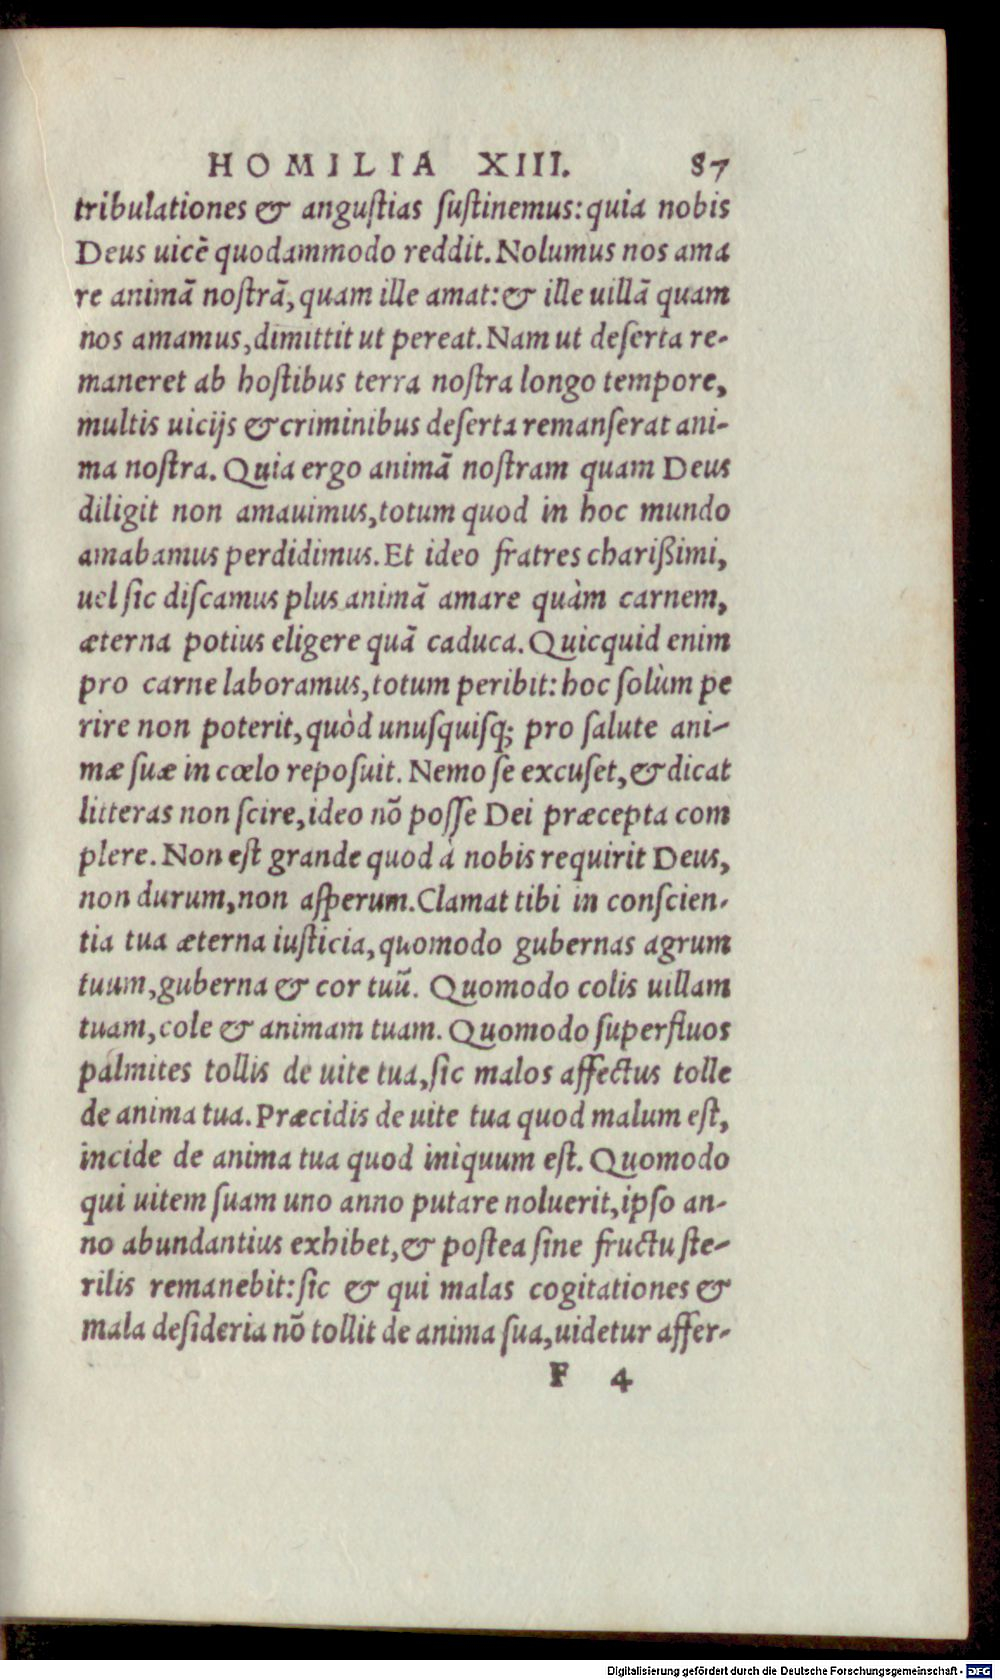 HOMILIA XIII. 87
tribulationes & angustias sustinemus: quia nobis
Deus uicē quodammodo reddit. Nolumus nos ama
re animā nostrā, quam ille amat: & ille uillā quam
nos amamus, dimittit ut pereat. Nam ut deserta re-
maneret ab hostibus terra nostra longo tempore,
multis uicijs & criminibus deserta remanserat ani-
ma nostra. Quia ergo animā nostram quam Deus
diligit non amauimus, totum quod in hoc mundo
amabamus perdidimus. Et ideo fratres charißimi,
uel sic discamus plus animā amare quàm carnem,
æterna potius eligere quā caduca. Quicquid enim
pro carne laboramus, totum peribit: hoc solùm pe
rire non poterit, quòd unusquisq; pro salute ani-
mæ suæ in cœlo reposuit. Nemo se excuset, & dicat
litteras non scire, ideo nō posse Dei præcepta com
plere. Non est grande quod à nobis requirit Deus,
non durum, non asperum. Clamat tibi in conscien-
tia tua æterna iusticia, quomodo gubernas agrum
tuum, guberna & cor tuū. Quomodo colis uillam
tuam, cole & animam tuam. Quomodo superfluos
palmites tollis de uite tua, sic malos affectus tolle
de anima tua. Præcidis de uite tua quod malum est,
incide de anima tua quod iniquum est. Quomodo
qui uitem suam uno anno putare noluerit, ipso an-
no abundantius exhibet, & postea sine fructu ste-
rilis remanebit: sic & qui malas cogitationes &
mala desideria nō tollit de anima sua, uidetur affer-
F 4
Digitalisierung gefördert durch die Deutsche Forschungsgemeinschaft - DFG